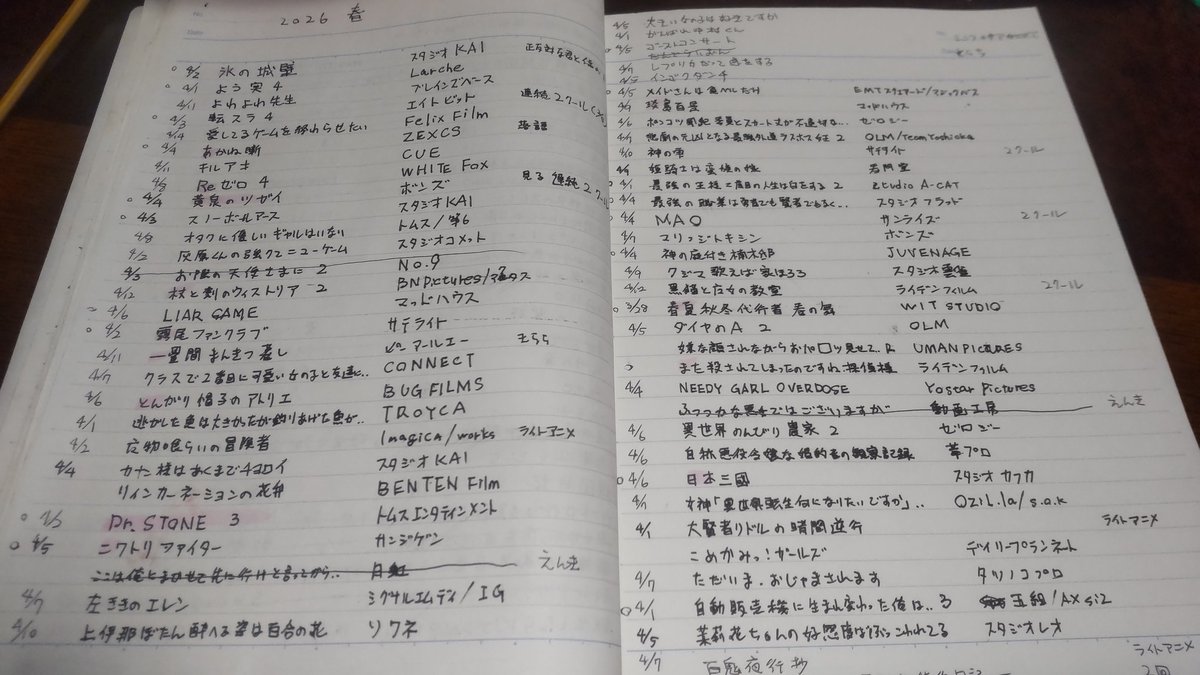 2026 春
4/2 氷の城壁 スタジオKAI
4/1 よう実4 Larche
4/11 よわよわ先生 ブレインズベース
4/3 転スラ4 エイトビット 連続2クール
愛してるゲームを終わらせたい Felix Film
4/4 あかね噺 ZEXCS 落語
4/11 キルアオ CUE
4/8 Reゼロ4 WHITE FOX
4/4 黄泉のツガイ ボンズ 見る 連続2クール
4/3 スノーボールアース スタジオKAI
オタクに優しいギャルはいない トムス/
4/2 灰原くんの強くてニューゲーム スタジオコメット
4/3 お隣の天使さまに 2 No.9
4/12 杖と剣のウィストリア 2 BNPictures/
4/6 LIAR GAME マッドハウス
4/2 霧尾ファンクラブ サテライト
4/11 一畳間まんきつ暮し ピーアールエー きらら
4/7 クラスで2番目に可愛い女の子と友達に.. CONNECT
4/6 とんがり帽子のアトリエ BUG FILMS
4/1 逃がした魚は大きかったが釣りあげた魚が.. TROYCA
4/2 冒険者 Imagica/works ライトアニメ
4/4 カナン様はあくまでチョロイ スタジオKAI
リィンカーネーションの花弁 BENTEN Film
Dr.STONE 3 トムスエンタテインメント
4/5 ニワトリファイター サンジゲン
ここは俺にまかせて先に行けと言ってから.. えんき
4/7 左ききのエレン シグナルエムディ/IG
4/10 上伊那ぼたん酔へる姿は百合の花 ソワネ
4/5 大きい女の子は好きですか
4/1 がんばれ中村くん
4/5 ゴーストコンサート
4/5 メイドさんは食べるだけ EMTスクエアード/マジックバス
淡島百景 マッドハウス
4/6 ポンコツ風紀委員とスカート丈が不適切な.. ゼロジー
悲劇の元凶となる最強外道ラスボス女王 2 OLM/TeamYoshioka
4/10 神の雫 サテライト 2クール
姫騎士は蛮族の嫁 寿門堂
4/1 最強の王様、二度目の人生は何をする 2 Studio A-CAT
4/4 最強の職業は勇者でも賢者でもなく.. スタジオフラッド
4/4 MAO サンライズ 2クール
4/7 マリッジトキシン ボンズ
4/4 神の庭付き楠木邸 JUVENAGE
4/9 クジマ歌えば家ほろろ スタジオ雲雀
4/12 黒猫と魔女の教室 ライデンフィルム 2クール
3/28 春夏秋冬代行者 春の舞 WIT STUDIO
4/5 ダイヤのA 2 OLM
嫌な顔されながらおパ〇ツ見せて.. R UMANPICTURES
また殺されてしまったのですね、探偵様 ライデンフィルム
4/4 NEEDY GARL OVERDOSE Yostar Pictures
ふつつかな悪女ではございますが 動画工房 えんき
4/6 異世界のんびり農家 2 ゼロジー
4/6 華プロ
4/6 日本三國 スタジオカフカ
女神「異世界転生何になりたいですか」.. OZil.la/s.o.k
4/1 大賢者リドルの時間逆行 ライトアニメ
こめかみっ!ガールズ デイリープランネット
4/7 ただいま、おじゃまされます タツノコプロ
4/1 自動販売機に生まれ変わった俺は.. 3 五組/AXsiZ
4/5 茉莉花ちゃんの好感度はぶっこわれてる スタジオレオ
4/7 百鬼夜行抄 ライトアニメ